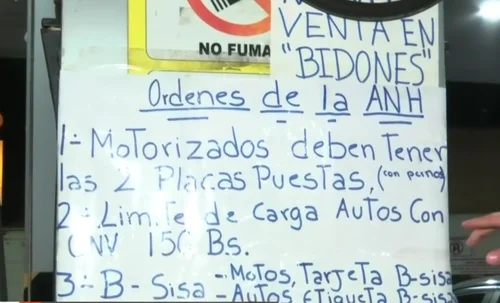 NO FUMA
VENTA EN
"BIDONES"
Ordenes de la ANH
1- Motorizados deben Tener
las 2 Placas Puestas, (con pernos)
2- Limite de Carga Autos Con
GNV 150 Bs.
3- B-Sisa - Motos, Tarjeta B-sisa
- Autos Etiqueta B-sisa